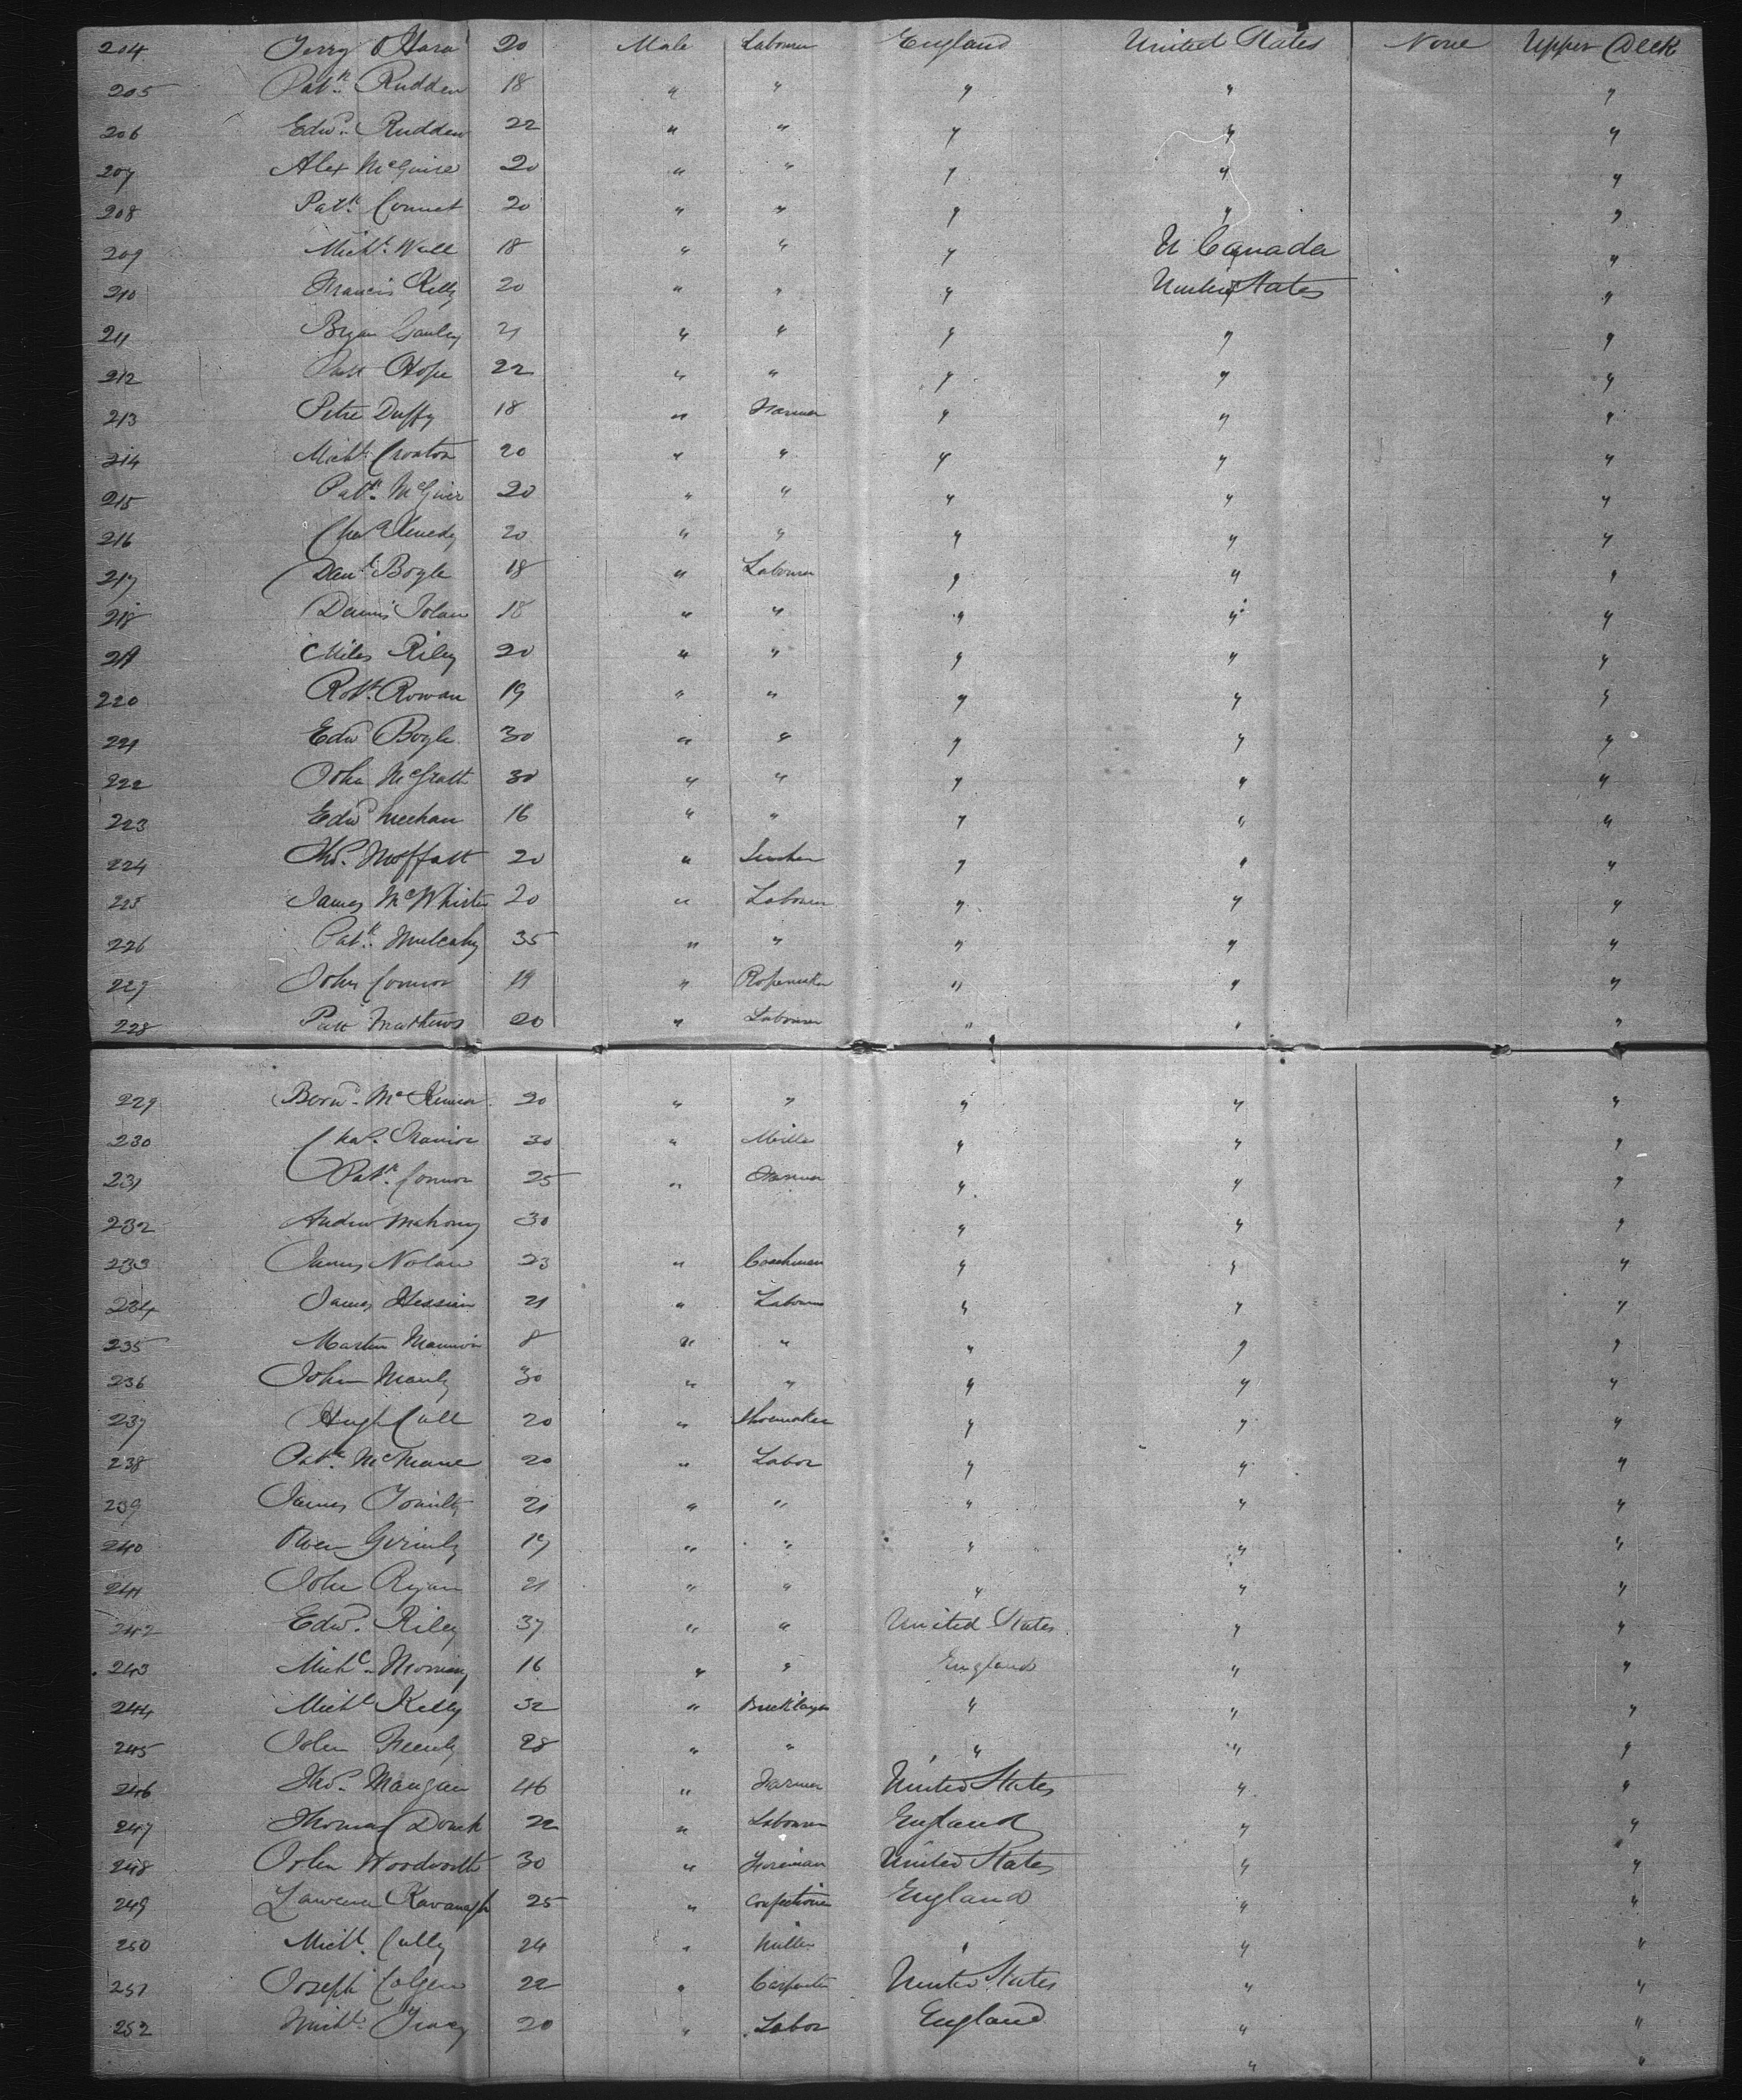 204 Terry O Hara 20 Male Labourer England United States None Upper Deck
205 Patk. Rudden 18 " " " " "
206 Edwd. Rudden 22 " " " " "
207 Alex McGuire 20 " " " " "
208 Patk. 20 " " " " "
209 Michl. Wall 18 " " " U Canada "
210 Francis Kelly 20 " " " United States "
211 Bryan Gauley 21 " " " " "
212 Patt Hope 22 " " " " "
213 Petre Duffy 18 " Farmer " " "
214 Michl. Croaton 20 " " " " "
215 Patk. McGuir 20 " " " " "
216 Chas Kenedy 20 " " " " "
217 Danl. Boyle 18 " Labourer " " "
218 Dennis 18 " " " " "
219 Miles Riley 20 " " " " "
220 Robt. Rowan 19 " " " " "
221 Edwd Boyle 30 " " " " "
222 John McGrath 30 " " " " "
223 Edwd Meehan 16 " " " " "
224 Thos. Moffatt 20 " " " "
225 James McWhirter 20 " Labourer " " "
226 Patk. Mulcahy 35 " " " " "
227 John Connor 19 " Ropemaker " " "
228 Patt Mathews 20 " Labourer " " "
229 Bernd. McKennon 20 " " " " "
230 Chas. 30 " Miller " " "
231 Patk. Connor 25 " Farmer " " "
232 Andrew Mahoney 30 " " "
233 James Nolan 23 " Coachman " " "
234 James Hession 21 " Labourer " " "
235 Martin Mannion 8 " " " " "
236 John Manly 30 " " " " "
237 Hugh Call 20 " Shoemaker " " "
238 Patk. McMane 20 " Labor " " "
239 James 21 " " " " "
240 Owen 19 " " " " "
241 John Ryan 21 " " " " "
242 Edwd. Riley 37 " " United States " "
243 Michl. 16 " " England " "
244 Michl Kelly 32 " Bricklayer " " "
245 John 28 " " " " "
246 Thos. Mangan 46 " Farmer United States " "
247 Thomas 22 " Labourer England " "
248 John Woodworth 30 " Fireman United States " "
249 Lawrence Kavanagh 25 " Confectioner England " "
250 Michl. Cully 24 " Miller " " "
251 Joseph Colgen 22 " Carpenter United States " "
252 Michl. Tracy 20 " Labor England " "
" "